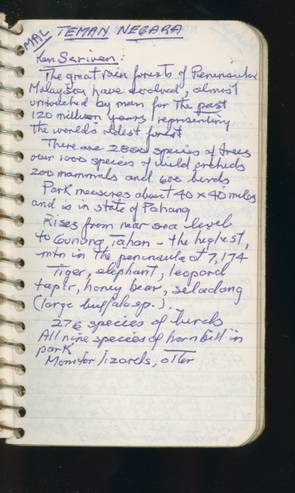 MAL TEMAN NEGARA
Ken Scriven:
The great rain forests of Peninsular
Malaysia, have evolved, almost
untouched by man for the past
120 million years representing
the world's oldest forest
There are 2800 species of trees
over 1000 species of wild orchids
200 mammals and 600 birds
Park measures about 40 x 40 miles
and is in state of Pahang
Rises from near sea level
to Gunong Tahan - the highest,
mtn in the peninsula at 7,174
Tiger, elephant, leopard
tapir, honey bear, seladang
(large buffalo sp.).
276 species of birds
All nine species of hornbill in
park
Monitor lizards, otter